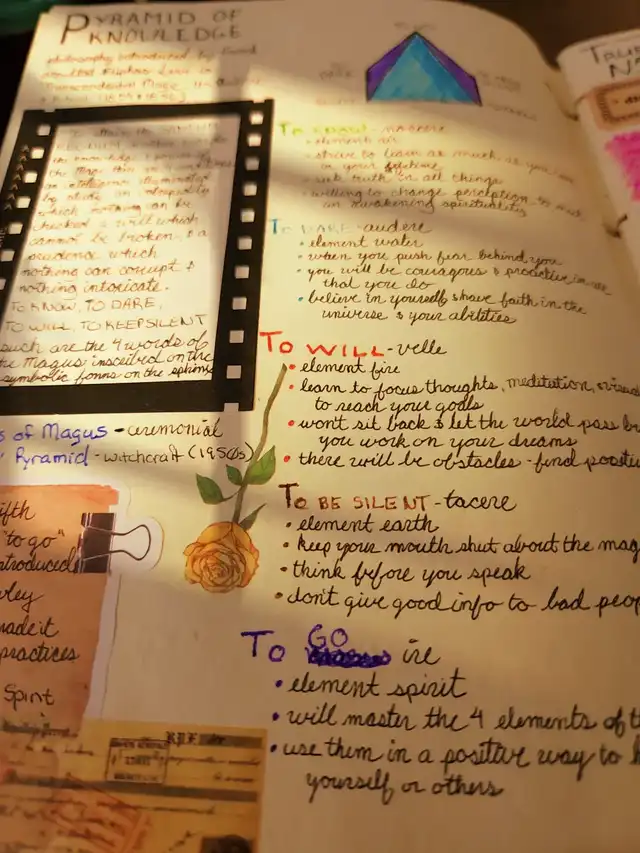 PYRAMID OF
KNOWLEDGE
philosophy introduced by
To attain the SANCTUM
REGNUM,
the knowledge & power of
the Magi, there are 4
an intelligence illuminated
by study, an intrepidity
which nothing can be
checked a will which
cannot be broken, & a
prudence which
nothing can corrupt &
nothing intoxicate.
TO KNOW, TO DARE,
TO WILL, TO KEEP SILENT
such are the 4 words of
the Magus inscribed on the
symbolic forms on the sphinx
s of Magus - ceremonial
Pyramid - witchcraft (1950s)
ifth
"to go"
ntroduced
wley
made it
practices
Spirit
TO KNOW - noscere
• element air
• strive to learn as much as you can
in your lifetime
• seek truth in all things
• willing to change perception
an awakening spirituality
TO DARE - audere
• element water
• when you push fear behind you
• you will be couragous & proactive in
that you do
• believe in yourself & have faith in the
universe & your abilities
TO WILL - velle
• element fire
• learn to focus thoughts, meditation,
to reach your goals
• won't sit back & let the world pass
you work on your dreams
• there will be obstacles - find
TO BE SILENT - tacere
• element earth
• keep your mouth shut about the mag
• think before you speak
• don't give good info to bad peop
TO GO ire
• element spirit
• will master the 4 elements of t
• use them in a positive way to h
yourself or others